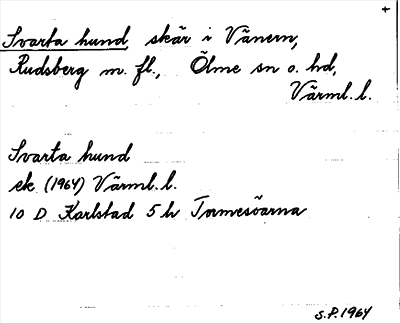 Svarta hund, skär i Vänern,
Rudsberg m. fl., Ölme sn o. hd,
Värml. l.
Svarta hund
ek. (1964) Värml. l.
10 D Karlstad 5 h Tormesöarna
S.P. 1964